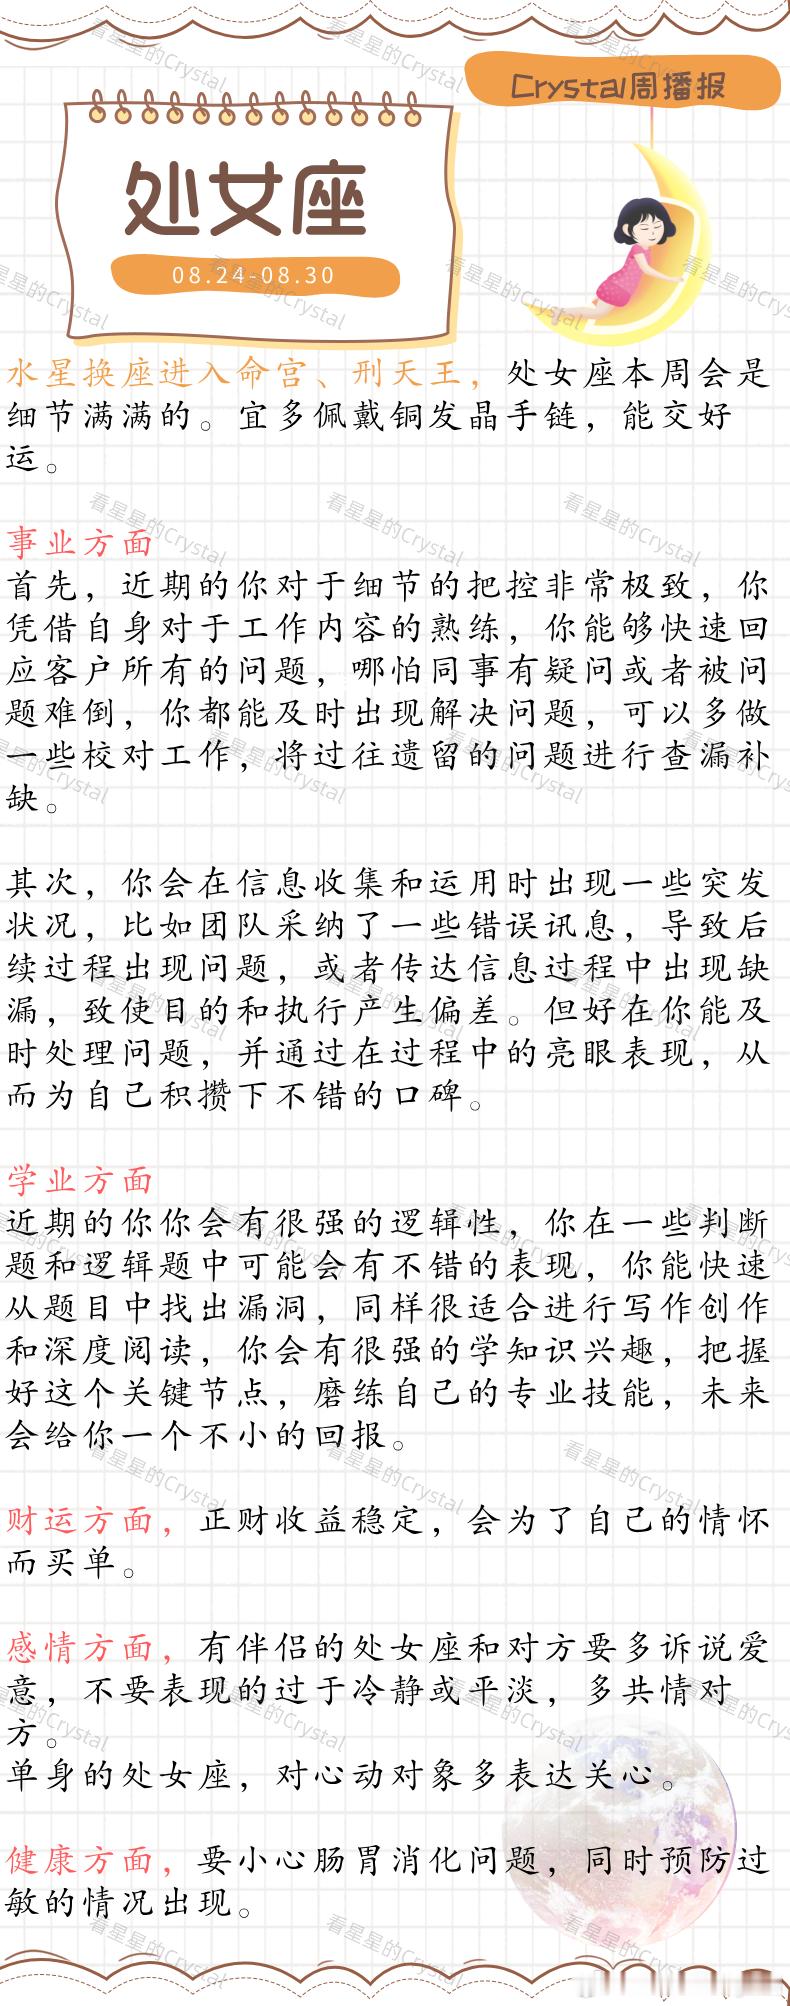 Crystal周播报
处女座
08.24-08.30
水星换座进入命宫、刑天王，处女座本周会是
细节满满的。宜多佩戴铜发晶手链，能交好
运。
事业方面
首先，近期的你对于细节的把控非常极致，你
凭借自身对于工作内容的熟练，你能够快速回
应客户所有的问题，哪怕同事有疑问或者被问
题难倒，你都能及时出现解决问题，可以多做
一些校对工作，将过往遗留的问题进行查漏补
缺。
其次，你会在信息收集和运用时出现一些突发
状况，比如团队采纳了一些错误讯息，导致后
续过程出现问题，或者传达信息过程中出现缺
漏，致使目的和执行产生偏差。但好在你能及
时处理问题，并通过在过程中的亮眼表现，从
而为自己积攒下不错的口碑。
学业方面
近期的你你会有很强的逻辑性，你在一些判断
题和逻辑题中可能会有不错的表现，你能快速
从题目中找出漏洞，同样很适合进行写作创作
和深度阅读，你会有很强的学知识兴趣，把握
好这个关键节点，磨练自己的专业技能，未来
会给你一个不小的回报。
财运方面，正财收益稳定，会为了自己的情怀
而买单。
感情方面，有伴侣的处女座和对方要多诉说爱
意，不要表现的过于冷静或平淡，多共情对
方。
单身的处女座，对心动对象多表达关心。
健康方面，要小心肠胃消化问题，同时预防过
敏的情况出现。
看星星的Crystal